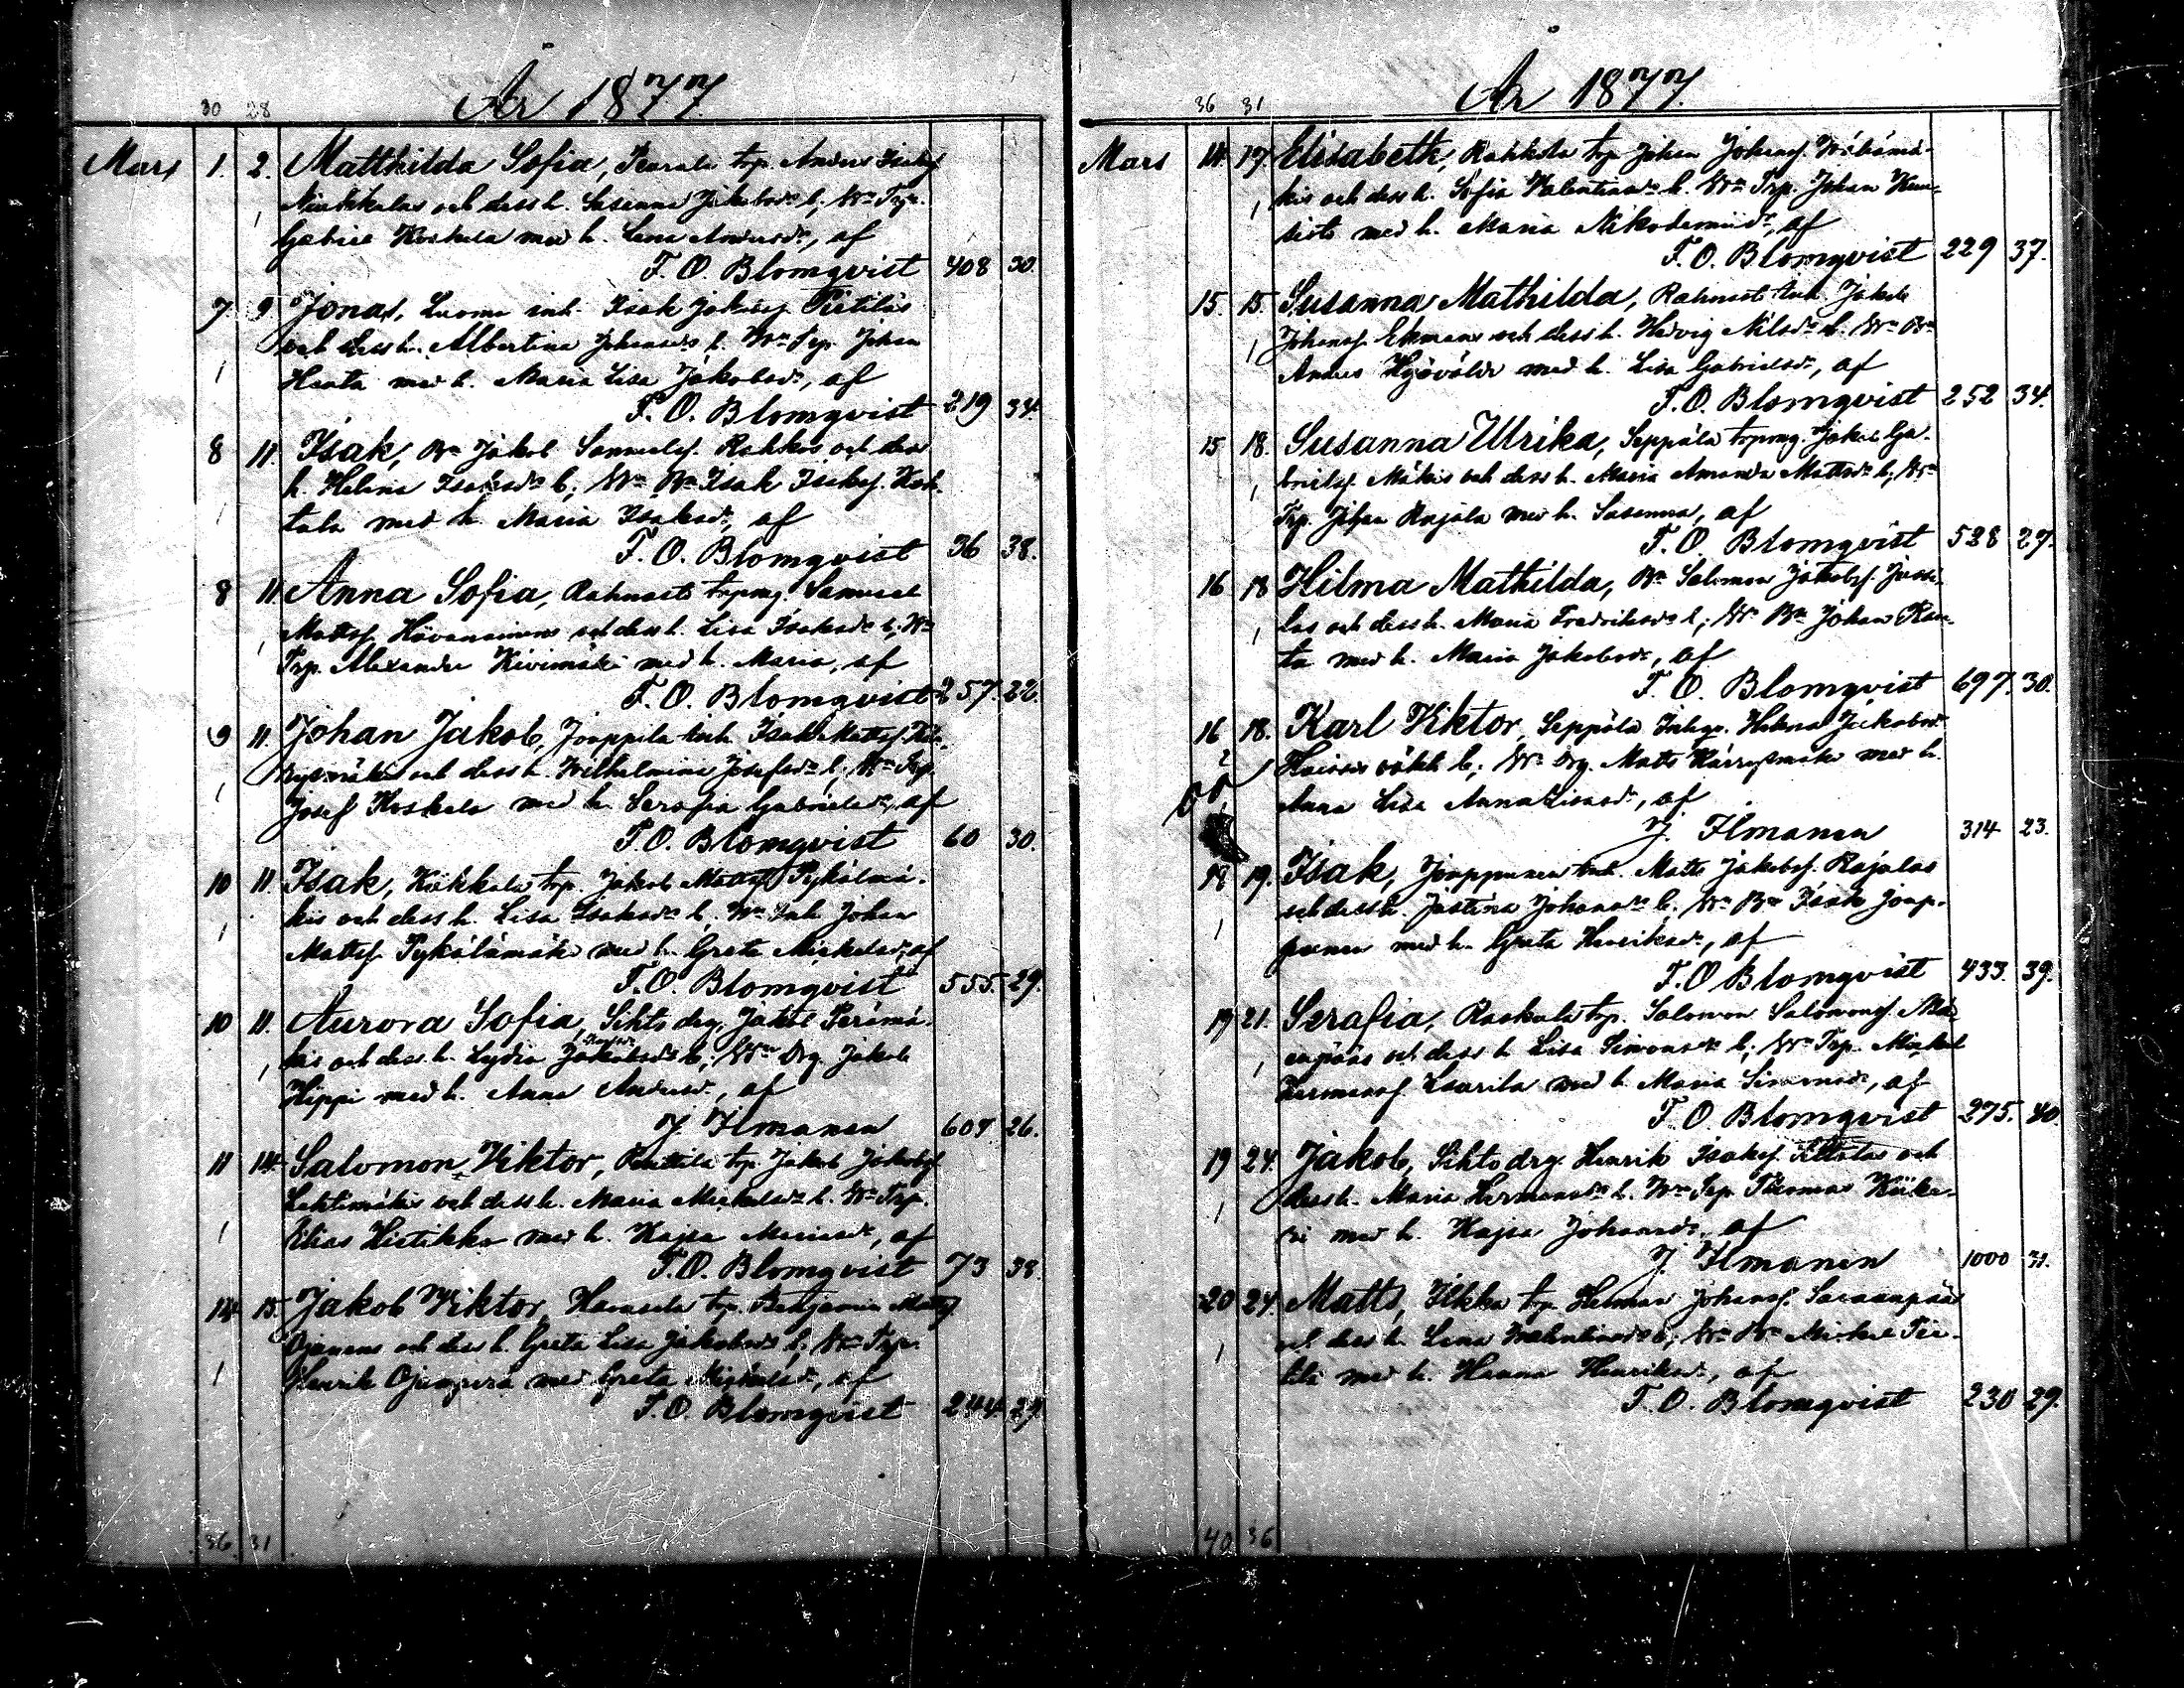 30 28 År 1877.
Mars 1. 2. Matthilda Sofia, trp. Anders Isaksf
och dess h. Susanna Jakobsdr b; Wn Trp.
1 Gabriel Koskela med h. Lena Andersdr, af
F. O. Blomqvist 408 30.
7 9 Jonas, Luoma inh. Isak Jakobsf Pirtiläs
och dess h. Albertina Johansdr b. Wn Trp. Johan
1 Hauta med h. Maria Lisa Jakobsdr, af
F. O. Blomqvist 219 34.
8 11. Isak, Bn Jakob Samuelsf. Rahkos och dess
h. Helena Isaksdr b; Wn Bn Isak Isaksf.
tala med h. Maria Isaksdr, af
F. O. Blomqvist 36 38.
8 11 Anna Sofia, Rahnasto trpmg Samuel
1 Mattsf. och dess h. Lisa Isaksdr b; Wn
Trp. Alexander Kivimäki med h. Maria, af
F. O. Blomqvist 257. 22.
9 11. Johan Jakob, Jouppila inh. Isak Mattsf.
och dess h. Wilhelmina Josefsdr b; Wn Trp.
1 Josef Koskela med h. Serafia Gabrielsdr, af
F. O. Blomqvist 60 30.
10 11. Isak, Kiikkala trp. Jakob Mattsf Pykälmä-
kis och dess h. Lisa Isaksdr b; Wn Inh Johan
1 Mattsf. Pykälämäki med h. Greta Mickelsdr, af
F. O. Blomqvist 555. 29.
10 11. Aurora Sofia, Sihto drg. Jakob Perämä-
1 kis och dess h. Lydia Jakobsdr b; Wn Drg. Jakob
Hippi med h. Anna Andersdr, af
J. Ilmanen 607 26.
11 14 Salomon Viktor, Penttilä trp. Jakob Jakobsf
Lehtimäkis och dess h. Maria Mickelsdr b. Wn Trp.
1 Elias Hietikko med h. Kajsa Mariasdr, af
F. O. Blomqvist 73 38.
14 15. Jakob Viktor, trp. Benjamin Mattsf
Ojanens och dess h. Greta Lisa Jakobsdr b; Wn Trp.
1 Henrik Ojanperä med Greta, af
F. O. Blomqvist 244. 29.
36 31
36 31 År 1877.
Mars 14 17. Elisabeth, Rahkola trp Johan Johansf. Wälimä-
1 kis och dess h. Sofia Valentinsdr b. Wn Trp. Johan
med h. Maria Nikodemusdr, af
F. O. Blomqvist 229 37.
15. 15. Susanna Mathilda, Rahnasto Inh. Jakob
1 Johansf. Ekmans och dess h. Hedvig Nilsdr b. Wn Bn
Anders med h. Lisa Gabrielsdr, af
F. O. Blomqvist 252 34.
15 18. Susanna Ulrika, Seppälä trpmg. Jakob Ga-
1 brielsf. Mäkis och dess h. Maria Amanda Mattsdr b; Wn
Trp. Johan Rajala med h. Susanna, af
F. O. Blomqvist 528 27.
16 18 Hilma Mathilda, Bn Salomon Jakobsf. Jussi-
1 las och dess h. Maria Fredriksdr b; Wn Bn Johan Ran-
ta med h. Maria Jakobsdr, af
F. O. Blomqvist 697. 30.
16 18. Karl Viktor, Seppälä Inhys. Helena Jakobsdr
2 oäkta b; Wn Drg. Matts Härrynmäki med h.
Anna Lisa Annalisasdr, af
J. Ilmanen 314 23.
18 19. Isak, Jouppunen Inh. Matts Jakobsf. Rajalas
och dess h. Justina Johansdr b. Wn Bn Isak Joup-
1 punen med h. Greta Henriksdr, af
F. O. Blomqvist 433. 39.
19 21. Serafia, Koskela trp. Salomon Salomonsf.
1 och dess h Lisa Simonsdr b; Wn Trp. Mickel
Hermansf. Laurila med h. Maria Simonsdr, af
F. O. Blomqvist 275. 40.
19 24. Jakob, Sihto drg. Henrik Isaksf. och
1 dess h. Maria Hermansdr b. Wn Trp Thomas
med h. Kajsa Johansdr, af
J. Ilmanen 1000 31.
20 24. Matts, Ilkka trp Herman Johansf. Saraanpääs
1 och dess h. Lena Valentinsdr b; Wn Bn Mickel Per-
med h. Hanna Henriksdr, af
F. O. Blomqvist 230 29.
40 36